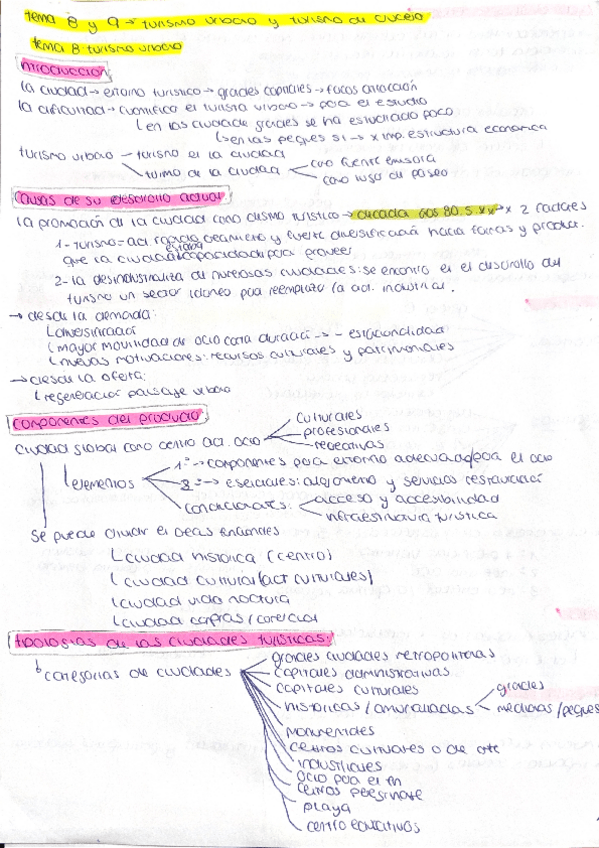 tema 8 y 9 → turismo urbano y turismo de cruceros
tema 8 turismo urbano
introducción
la ciudad → entorno turístico → grandes capitales → focos atracción
la dificultad → cuantificar el turismo urbano → para el estudio
en las ciudades grandes se ha estudiado poco
en las peques sí → x imp. estructura económica
turismo urbano turismo en la ciudad
turismo de la ciudad como fuente emisora
como lugar de paseo
causas de su desarrollo actual
la promoción de la ciudad como dismo turístico → década dos 80. S. XX → x 2 factores
1- turismo = act. crecimiento y fuerte diversificación hacia formas y product.
que la ciudad estaba capacitada para proveer
2- la desindustrializa de numerosas ciudades: se encontró en el discrollo del
turismo un sector idóneo para reemplazar la act. industrial.
→ desde la demanda:
diversificación
mayor movilidad de ocio corta duración → - estacionalidad
nuevas motivaciones: recursos culturales y patrimoniales
→ desde la oferta:
regeneración paisaje urbano
componentes del producto
ciudad global como centro act. ocio culturales
profesionales
recreativas
elementos 1º → componentes para entorno adecuado para el ocio
2º → esenciales: alojamiento y servicios restauración
condicionantes: acceso y accesibilidad
infraestructura turística
Se puede dividir en áreas
ciudad histórica (centro)
ciudad cultural (act culturales)
ciudad vida nocturna
ciudad compras / comercial
tipologías de las ciudades turísticas:
categorías de ciudades grandes ciudades metropolitanas
capitales administrativas
capitales culturales
históricas / amuralladas grandes
medianas / peques
monumentales
centros culturales o de arte
industriales
ocio para el
centros peregrinaje
playa
centro educativos